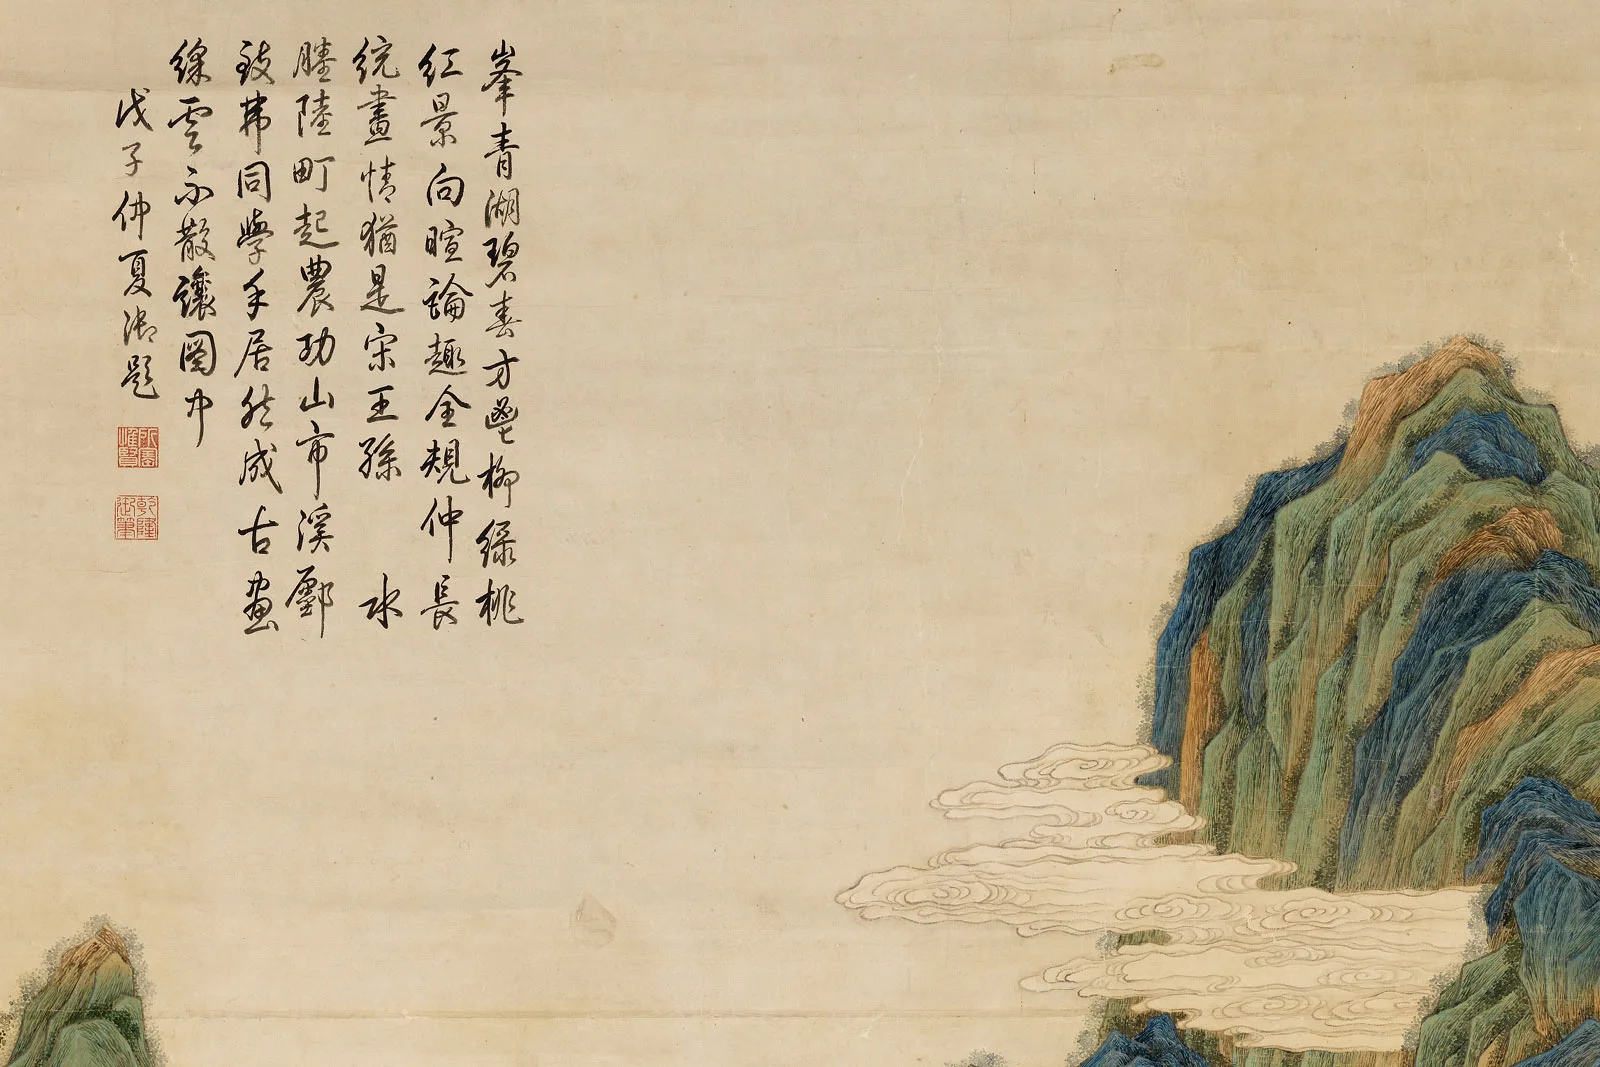 峯青湖碧春方鬯柳綠桃
紅景向暄論趣全規仲長
統畫情猶是宋王孫 水
塍陸町起農功山市溪鄽
致弗同學手居然成古畫
綵雲不散護圖中
戊子仲夏御題
所寶惟賢
乾隆御筆